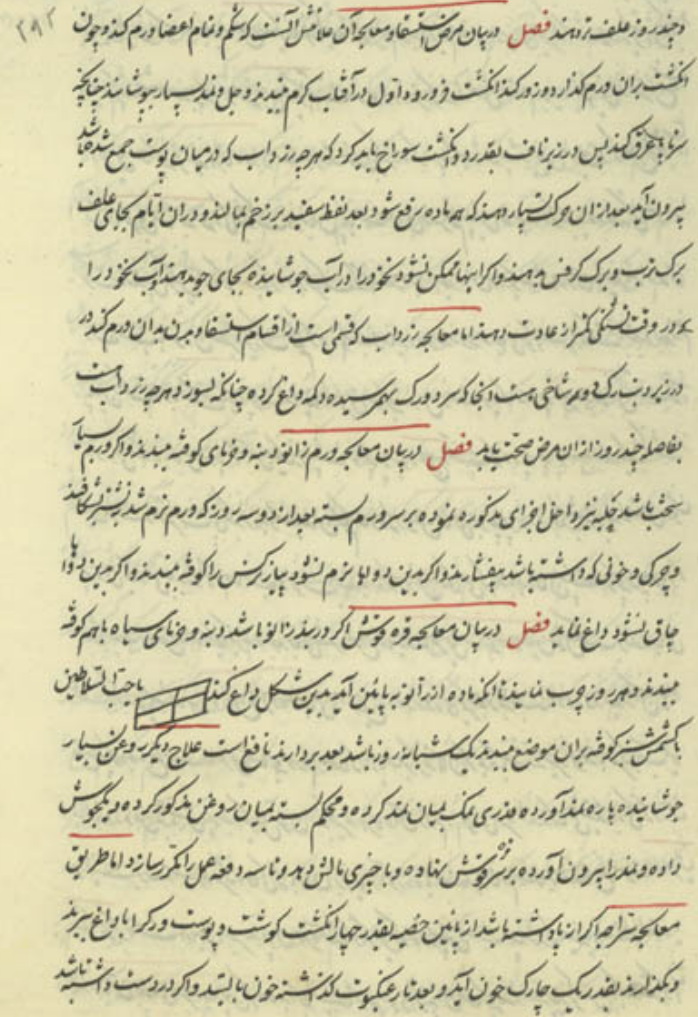 ۲۹۲
و چند روز علف تر دهند فصل در بیان مرض استسقا و معالجه آن علامتش آنست که شکم و تمام اعضا ورم کند و چون
انگشت بران ورم گذارد و زور کند انگشت فرو رود اول در آفتاب گرم ببندند و جل و نمد بسیار بپوشانند چنانچه
سر تا پا عرق کند پس در زیر ناف بقدر دو انگشت سوراخ باید کرد که هرچه زرداب که در میان پوست جمع شده باشد
بیرون آید بعد ازان بسیار دهند که همه ماده رفع شود بعد نفط سفید بر زخم بمالند و دران ایام بجای علف
برک ترب و برک کرفس بدهند و اگر اینها ممکن نشود نخود را در آب جوشانیده بجای جو بدهند و آب نخود را
در وقت تشنگی کمتر از عادت دهند اما معالجه زرداب که قسمی است از اقسام استسقا و بدن بدان ورم کند در
در زیر دنب رک دو شاخی هست آنجا که سر دو رک بهم رسیده دکمه داغ کرده چنانکه بسوزد هرچه زرداب است
بفاصله چند روز ازان مرض صحت یابد فصل در بیان معالجه ورم زانو دنبه و خرمای کوفته ببندند و اگر ورم بسیار
سخت باشد حلبه نیز داخل اجزای مذکوره نموده بر سر ورم بسته بعد از دو سه روز که ورم نرم شد بنشتر شکافند
و چرکی و خونی که داشته باشد بیفشارند و اگر بدین دواها نرم نشود پیاز نرکس را کوفته ببندند و اگر بدین دواها
چاق نشود داغ نماید فصل در بیان معالجه قره قوش اگر در بند زانو باشد دنبه و خرمای سیاه باهم کوفته
ببندند و هر روز چوب نمایند تا آنکه ماده از زانو به پائین آید بدین شکل داغ کنند یا حب السلاطین
با کشمش کوفته بران موضع ببندند یک شبانه روز باشد بعد بردارند نافع است علاج دیگر روغن بسیار
جوشانیده پاره نمد آورده قدری نمک بمیان نمد کرده و محکم بسته بمیان روغن مذکور کرده و یکجوش
داده و نمد را بیرون آورده بر سر قره قوش نهاده و با چیزی مالش دهد و تا سه دفعه عمل را مکرر سازد اما طریق
معالجه اگر از پا داشته باشد از پائین خصیه بقدر چهار انگشت گوشت و پوست و رک را با داغ ببرند
و بگذارند بقدر یک چارک خون آید و بعد تار عنکبوت گذاشته خون باستد و اگر در دست داشته باشد